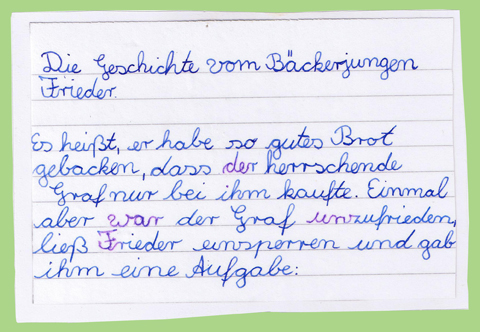 Die Geschichte vom Bäckerjungen
Frieder.
Es heißt, er habe so gutes Brot
gebacken, dass der herrschende
Graf nur bei ihm kaufte. Einmal
aber war der Graf unzufrieden,
ließ Frieder einsperren und gab
ihm eine Aufgabe: